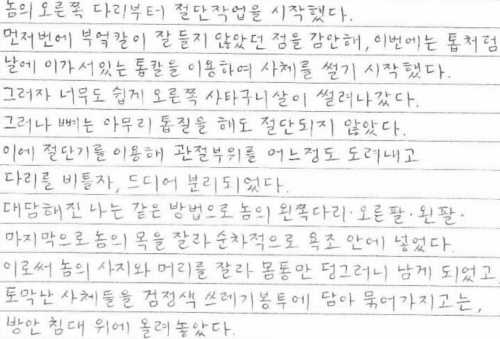 놈의 오른쪽 다리부터 절단작업을 시작했다.
먼저번에 부엌칼이 잘 들지 않았던 점을 감안해, 이번에는 톱처럼
날에 이가 서있는 톱칼을 이용하여 사체를 썰기 시작했다.
그러자 너무도 쉽게 오른쪽 사타구니살이 썰려나갔다.
그러나 뼈는 아무리 톱질을 해도 절단되지 않았다.
이에 절단기를 이용해 관절부위를 어느정도 도려내고
다리를 비틀자, 드디어 분리되었다.
대담해진 나는 같은 방법으로 놈의 왼쪽다리·오른팔·왼팔·
마지막으로 놈의 목을 잘라 순차적으로 욕조 안에 넣었다.
이로써 놈의 사지와 머리를 잘라 몸통만 덩그러니 남게 되었고,
토막난 사체들을 검정색 쓰레기봉투에 담아 묶어가지고는,
방안 침대 위에 올려놓았다.